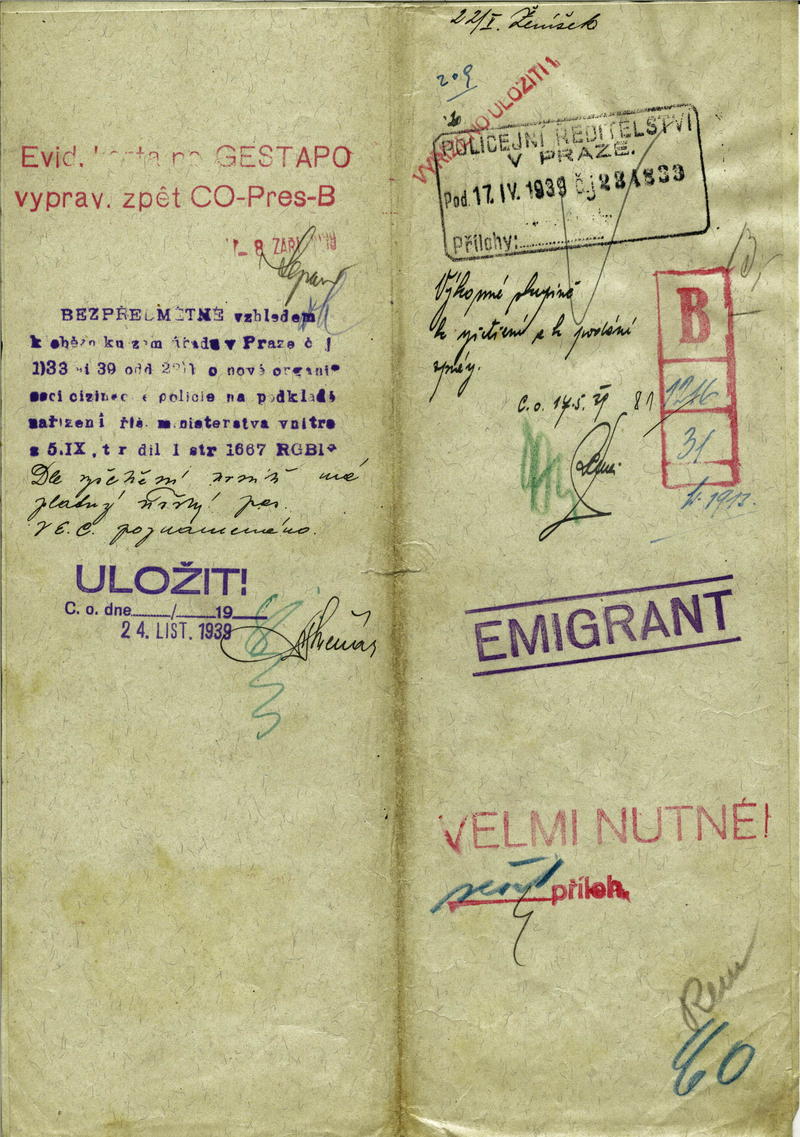 Evid. karta na GESTAPO
vyprav. zpět CO-Pres-B
- 8 ZÁŘÍ
BEZPŘEDMĚTNÉ vzhledem
k oběžníku zem úřadu v Praze č j
39 odd o nové organi
saci cizinec é policie na podkladě
nařízení říš. ministerstva vnitra
z 5.IX, t r díl I str 1667 RGBl
Dle zjištění má
platný říšský pas.
V E.C. poznamenáno.
ULOŽIT!
C. o. dne ___/___19__
24. LIST. 1939
22/I. Ženíšek
209
VYŘÍZENO ULOŽITI!
POLICEJNÍ ŘEDITELSTVÍ
V PRAZE.
Pod. 17. IV. 1939 čj 234833
Přílohy:
Výkonné skupině
k zjištění a k podání
zprávy.
C. o. 17.5. 39 81
B
1216
31
EMIGRANT
VELMI NUTNÉ!
příloh.
Rem
60